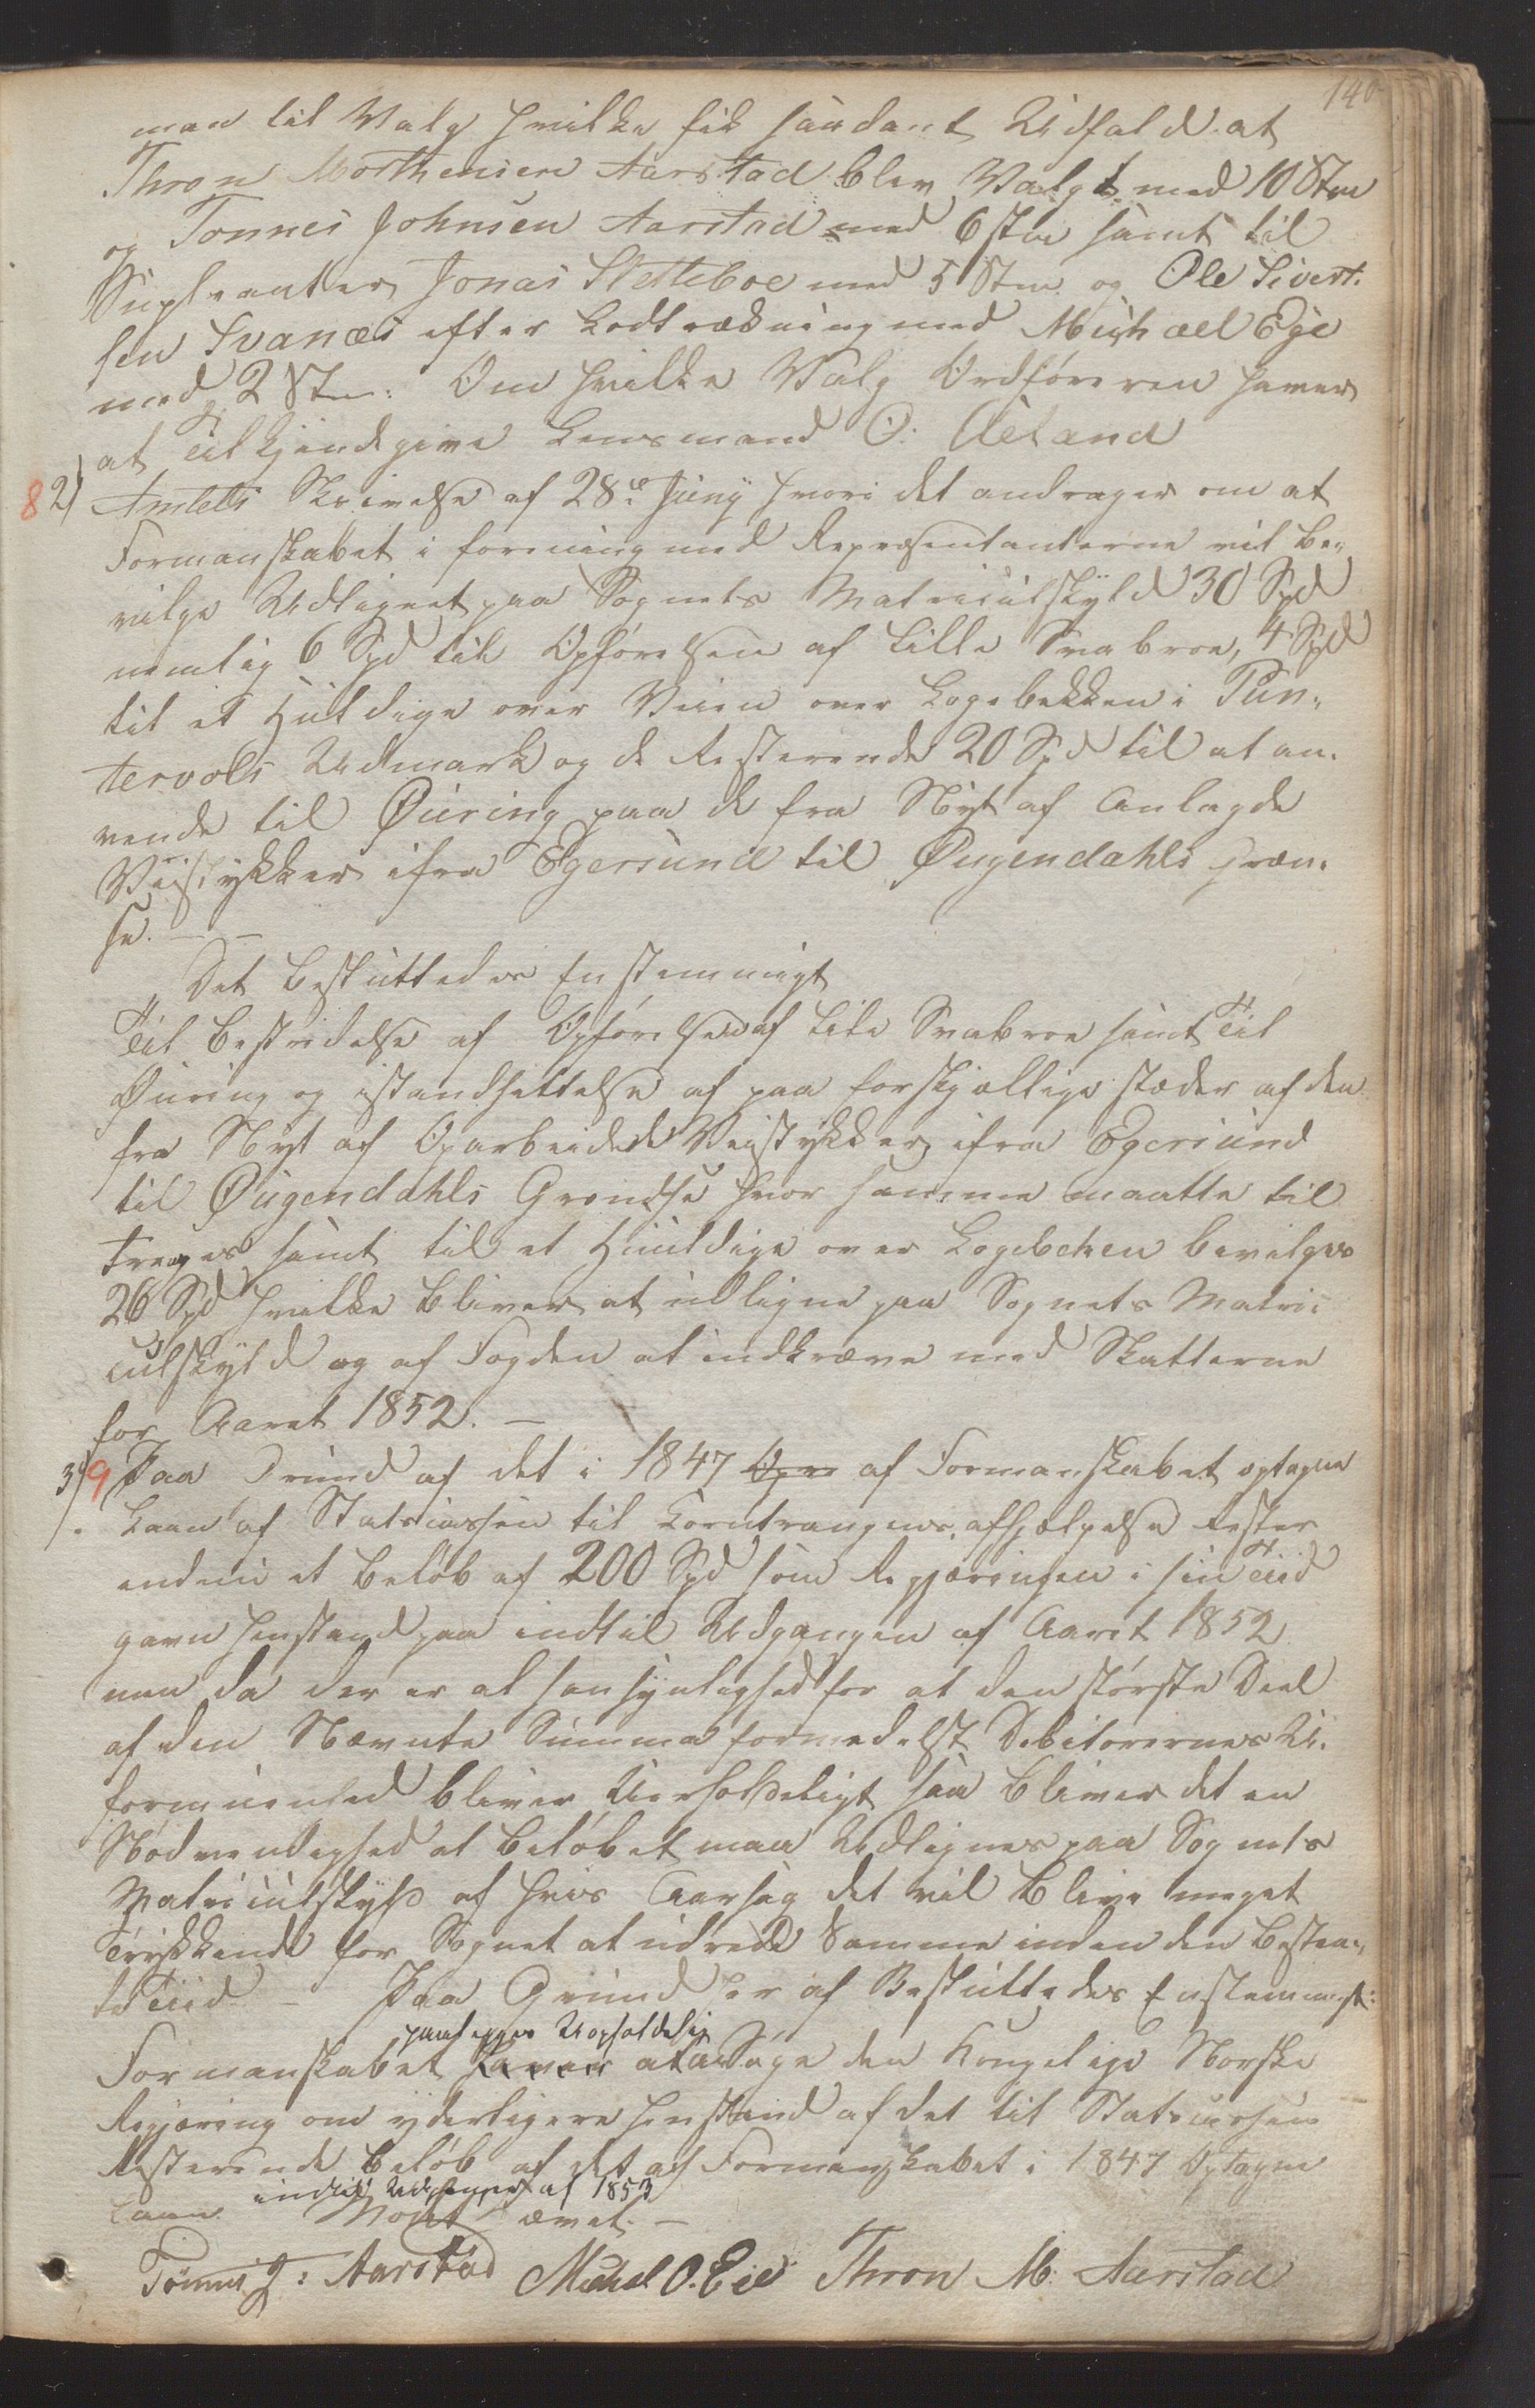 140
man til Valg hvilke fik saadant Udfald at
Thron Morthensen Aarstad blev Valgt med 10 Stm
og Tonnes Johnsen Aarstad med 6 stm samt til
Supleanter Jonas Sletteboe med 5 Stm. og Ole Sivert-
sen Svanæs efter Lodtrækning med Michael Ege
med 2 Stm: Om hvilke Valg Ordføreren haver
at Tilkjendegive Lensmand O: Aeland
8 2) Amtets Skrivelse af 28de Juny hvori det andrager om at
Formanskabet i forening med Repræsentanterne vil be-
vilge Udlignet paa Sognets Matriculskyld 30 Spd
nemlig 6 Spd til Opførelsen af Lille Svabroe, 4 Spd
til et Huldige over Veien over Logebekken i Pun-
tervols Udmark og de Resterende 20 Spd til at an-
vende til Øuring paa de fra Nyt af Anlagde
Veistykker ifra Egersund til Øugendahls Græn-
se. — —
Det besluttedes Enstemmigt
Til bestridelse af Opførelsen af Lile Svabroe samt Til
Øuring og istandsettelse af paa forskjællige stæder af den
fra Nyt af Oparbeidede Veistykker ifra Egersund
til Øugendahls Grændse hvor samme maatte til
trenges samt til et Huuldige over Logebeken bevilges
26 Spd hvilke bliver at udligne paa Sognets Matri-
culskyld og af Fogden at indkræve med Skatterne
for Aaret 1852. —
3) 9 Paa Grund af det i 1847 Opre af Formanskabet optagne
Laan af Statscassen til Korntrangens afhjælpelse Rester
endnu et Beløb af 200 Spd som Regjæringen i sin Tiid
gaven henstand paa indtil Udgangen af Aaret 1852
men da der er al sansynlighed for at den største Deel
af den Nævnte Summa formedelst Debitorernes U-
formuenhed bliver Uerholdeligt saa bliver det en
Nødvendighed at beløbet maa Udlignes paa Sognets
Matriculskyld af hvis Aarsag det vil blive meget
Trykkende for Sognet at udrede Samme inden den bestem-
te Tiid — Paa Grund her af Besluttedes Enstemmigt:
paalegges Uopholdelig
Formanskabet haver at anSøge den Kongelige Norske
Regjæring om yderligere henstand af det til Statscassen
Resterende beløb af det af Formanskabet i 1847 Optagne
indtil Udgangen af 1853
Laan
Tönnes J: Aarstad Michel O. Eie Thron M: Aarstad